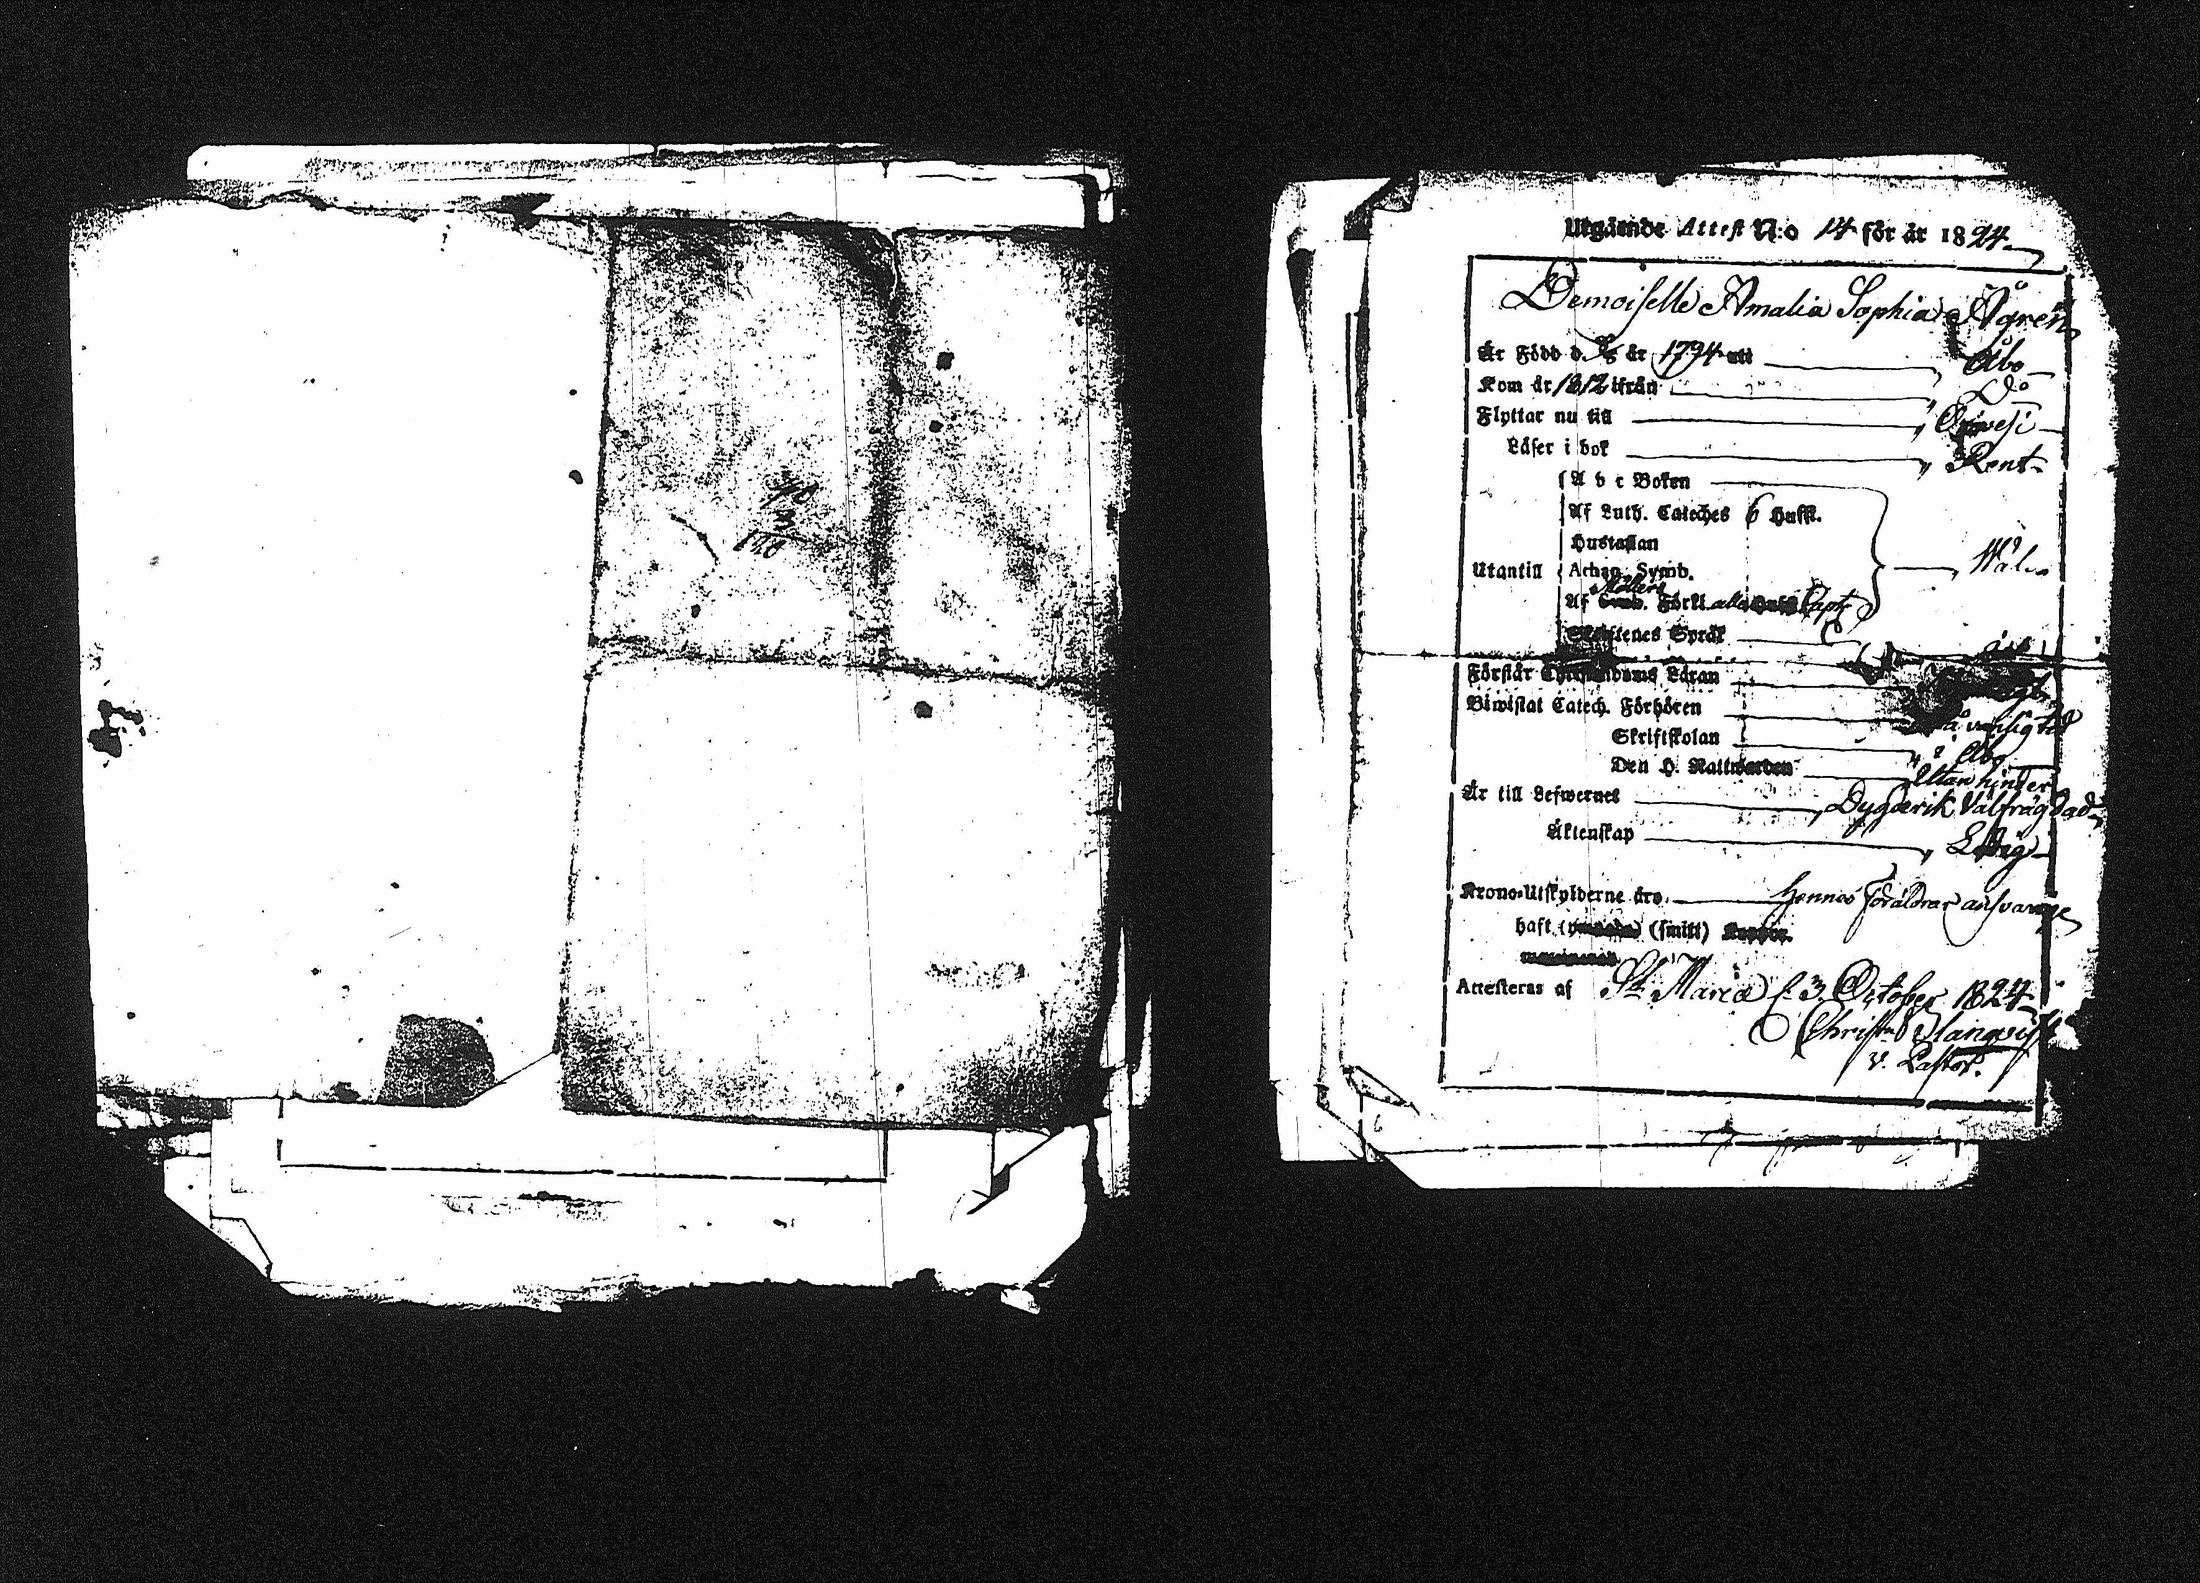 40
3
120
Utgående Attest N:o 14 för år 1824
Demoiselle Amalia Sophia Ågren
Är Född d. år 1794 uti Åbo
Kom år 1812 ifrån Do
Flyttar nu till Orivesi
Läser i bok Rent
A b c Boken
Af Luth. Cateches 6 Hufst.
Hustaflan
Utantill Athan. Symb. Wäl
Möllers
Af Förkl. alla Capt
Skriftenes Språk
Förstår Christendoms Läran
Biwistat Catech. Förhören å vanlig tid
Skriftskolan i Åbo
Den H. Nattwarden Utan hinder
Är till Lefwernet Dygderik Välfrägdad
Äktenskap Ledig
Krono-Utskylderne äro Hennes Föräldrar ansvarige
haft (smitt)
Attesteras af St Mariæ d. 3 October 1824
v. Pastor.